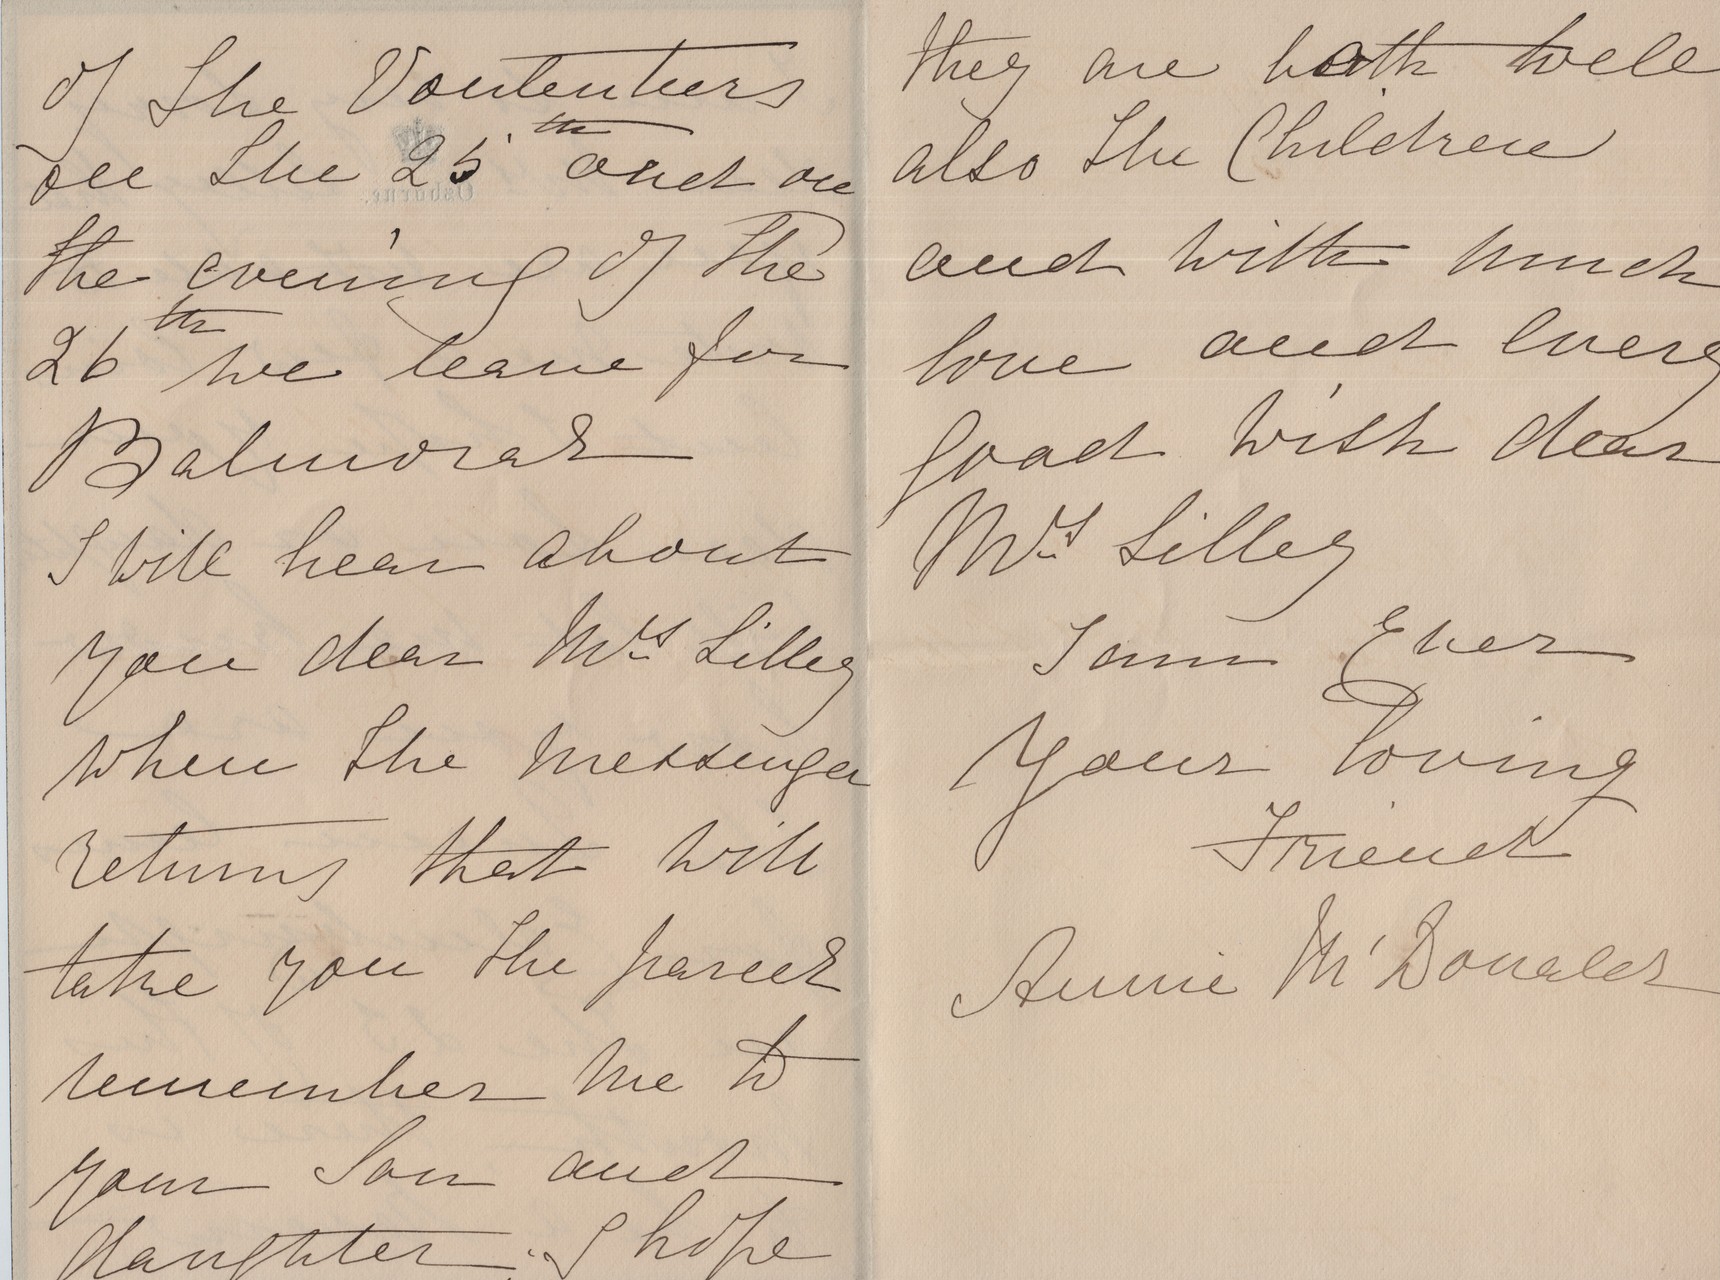 of the Vontenteers
on the 25th and on
the evening of the
26th we leave for
Balmoral
I will hear about
you dear Mrs Lilley
when the Messenger
returns that will
take you the parcel
remember me to
your Son and
daughter. I hope
Osborne.
they are both well
also the Children
and with much
love and every
good wish dear
Mrs Lilley
I am Ever
Your loving
Friend
Annie McDonald